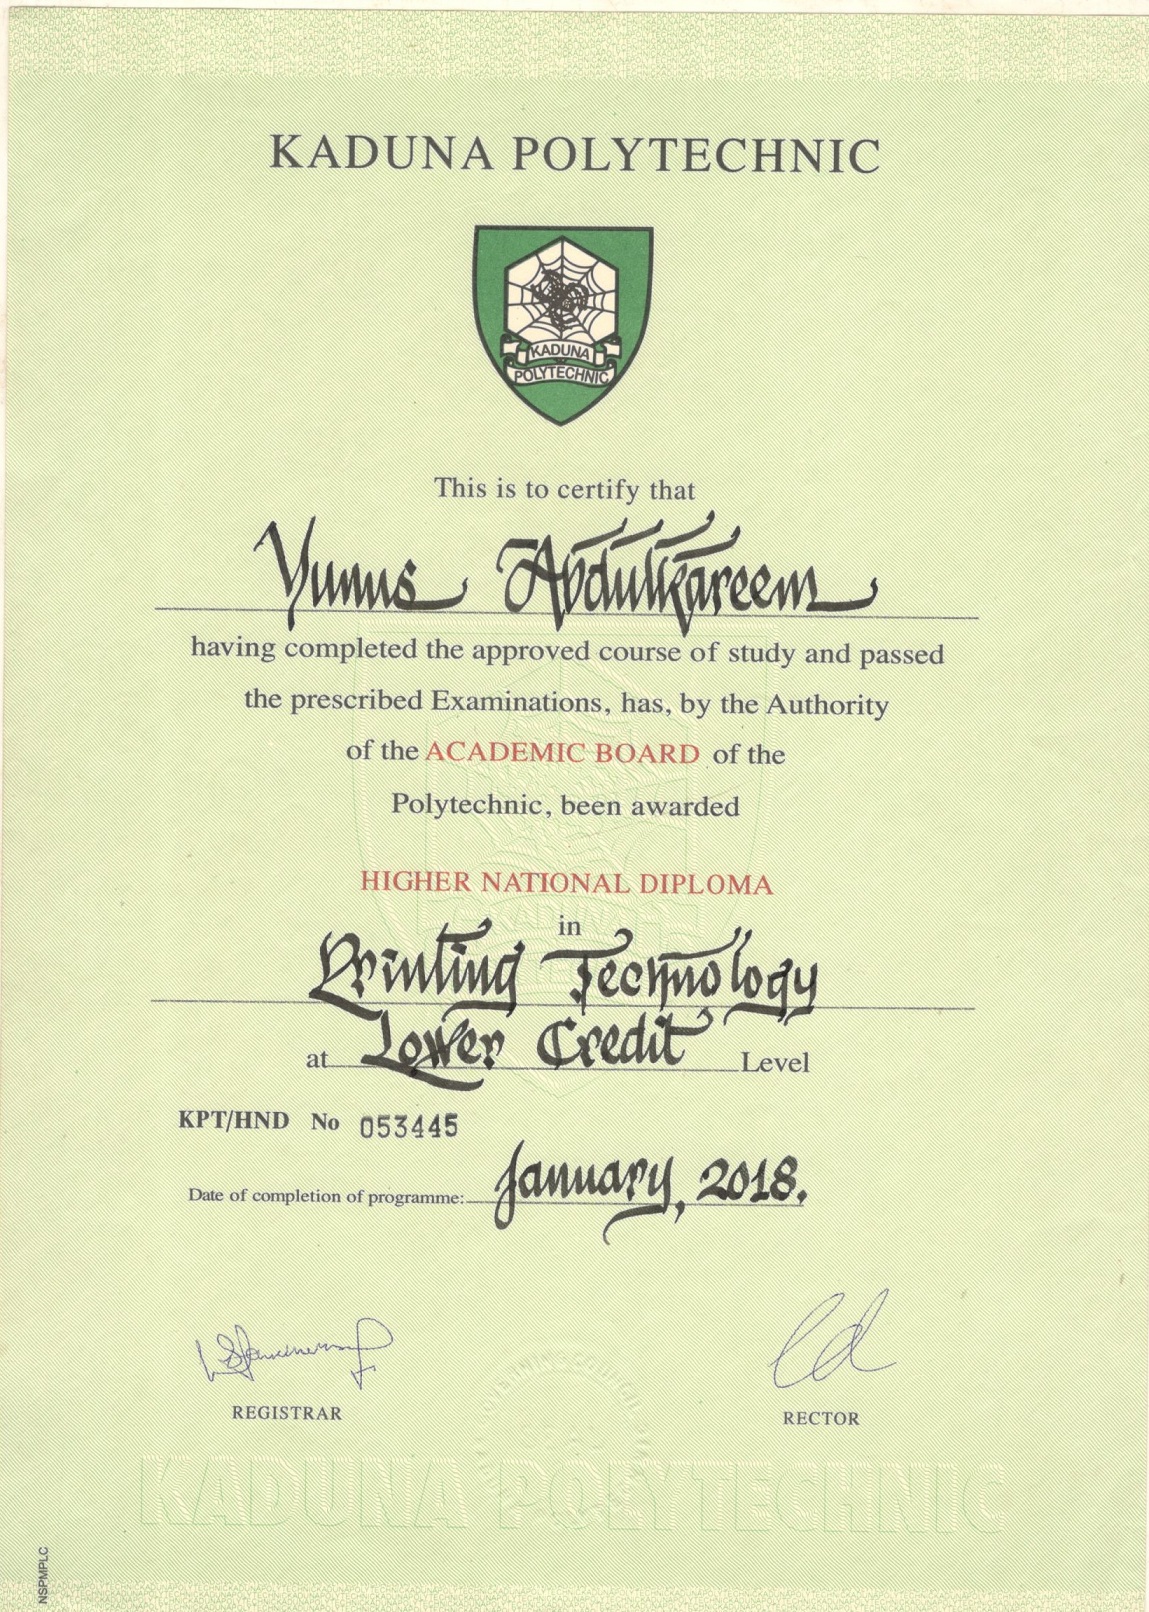 KADUNA POLYTECHNIC
KADUNA
POLYTECHNIC
This is to certify that
Yunus Abdulkareem
having completed the approved course of study and passed
the prescribed Examinations, has, by the Authority
of the ACADEMIC BOARD of the
Polytechnic, been awarded
HIGHER NATIONAL DIPLOMA
in
Printing Technology
at Lower Credit Level
KPT/HND No 053445
Date of completion of programme: January, 2018.
REGISTRAR
RECTOR
KADUNA POLYTECHNIC
NSPMPLC